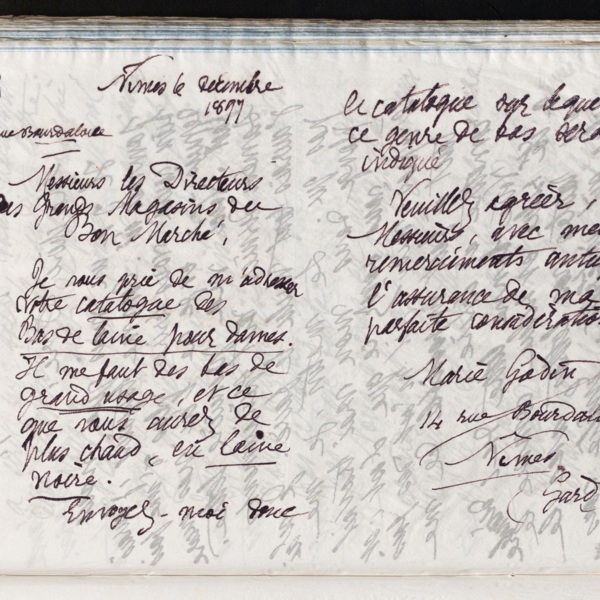 Nimes le décembre
1897
rue Bourdaloue
Messieurs les Directeurs
des Grands Magasins du
Bon Marché,
Je vous prie de m'adresser
votre catalogue des
Bas de laine pour dames.
Il me faut des bas de
grand usage, et ce
que vous aurez de
plus chaud, en laine
noire.
Envoyez-moi donc
le catalogue sur leque
ce genre de bas sera
indiqué
Veuillez agréer,
Messieurs, avec mes
remerciments antic
l'assurance de ma
parfaite considération
Marie Godin
14 rue Bourdalo
Nîmes
(Gard